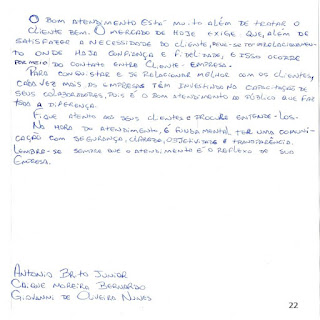 O BOM ATENDIMENTO ESTÁ MUITO ALÉM DE TRATAR O
CLIENTE BEM. O MERCADO DE HOJE EXIGE QUE, ALÉM DE
SATISFAZER A NECESSIDADE DO CLIENTE, DEVE-SE TER RELACIONAMEN-
TO ONDE HAJA CONFIANÇA E FIDELIDADE, E ISSO OCORRE
POR MEIO DO CONTATO ENTRE CLIENTE-EMPRESA.
PARA CONQUISTAR E SE RELACIONAR MELHOR COM OS CLIENTES,
CADA VEZ MAIS AS EMPRESAS TÊM INVESTINDO NA CAPACITAÇÃO DE
SEUS COLABORADORES, POIS É O BOM ATENDIMENTO AO PÚBLICO QUE FAZ
TODA A DIFERENÇA.
FIQUE ATENTO AOS SEUS CLIENTES E PROCURE ENTENDÊ-LOS.
NA HORA DO ATENDIMENTO, É FUNDAMENTAL TER UMA COMUNI-
CAÇÃO COM SEGURANÇA, CLAREZA, OBJETIVIDADE E TRANSPARÊNCIA.
LEMBRE-SE SEMPRE QUE O ATENDIMENTO É O REFLEXO DE SUA
EMPRESA.
ANTONIO BRITO JUNIOR
CAIQUE MOREIRA BERNARDO
GIOVANNI DE OLIVEIRA NUNES
22